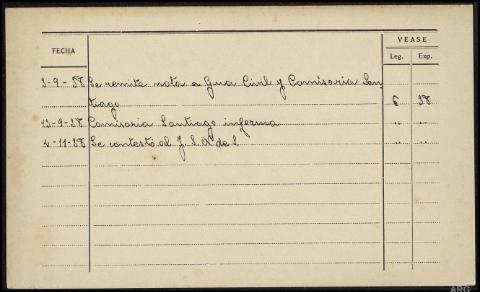 VEASE
FECHA Leg. Exp.
3-9-58 Se remite nota a Gua Civil y Comisaria San
tiago 6 58
23-9-58 Comisaria Santiago informa " "
4-11-58 Se contestó al J. S. de " "
ARG